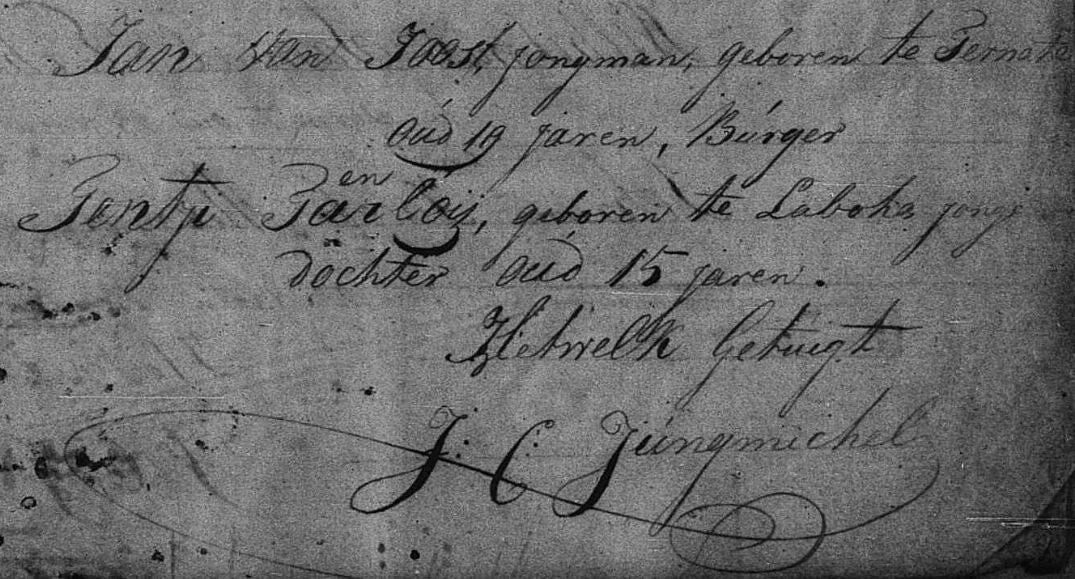 Jan van Joost, jongman, geboren te Ternate
oud 19 jaren, Burger
en
Tentji Tarloij, geboren te Laboha jonge
dochter oud 15 jaren.
Hetwelk Getuigt
J: C: Jungmichel